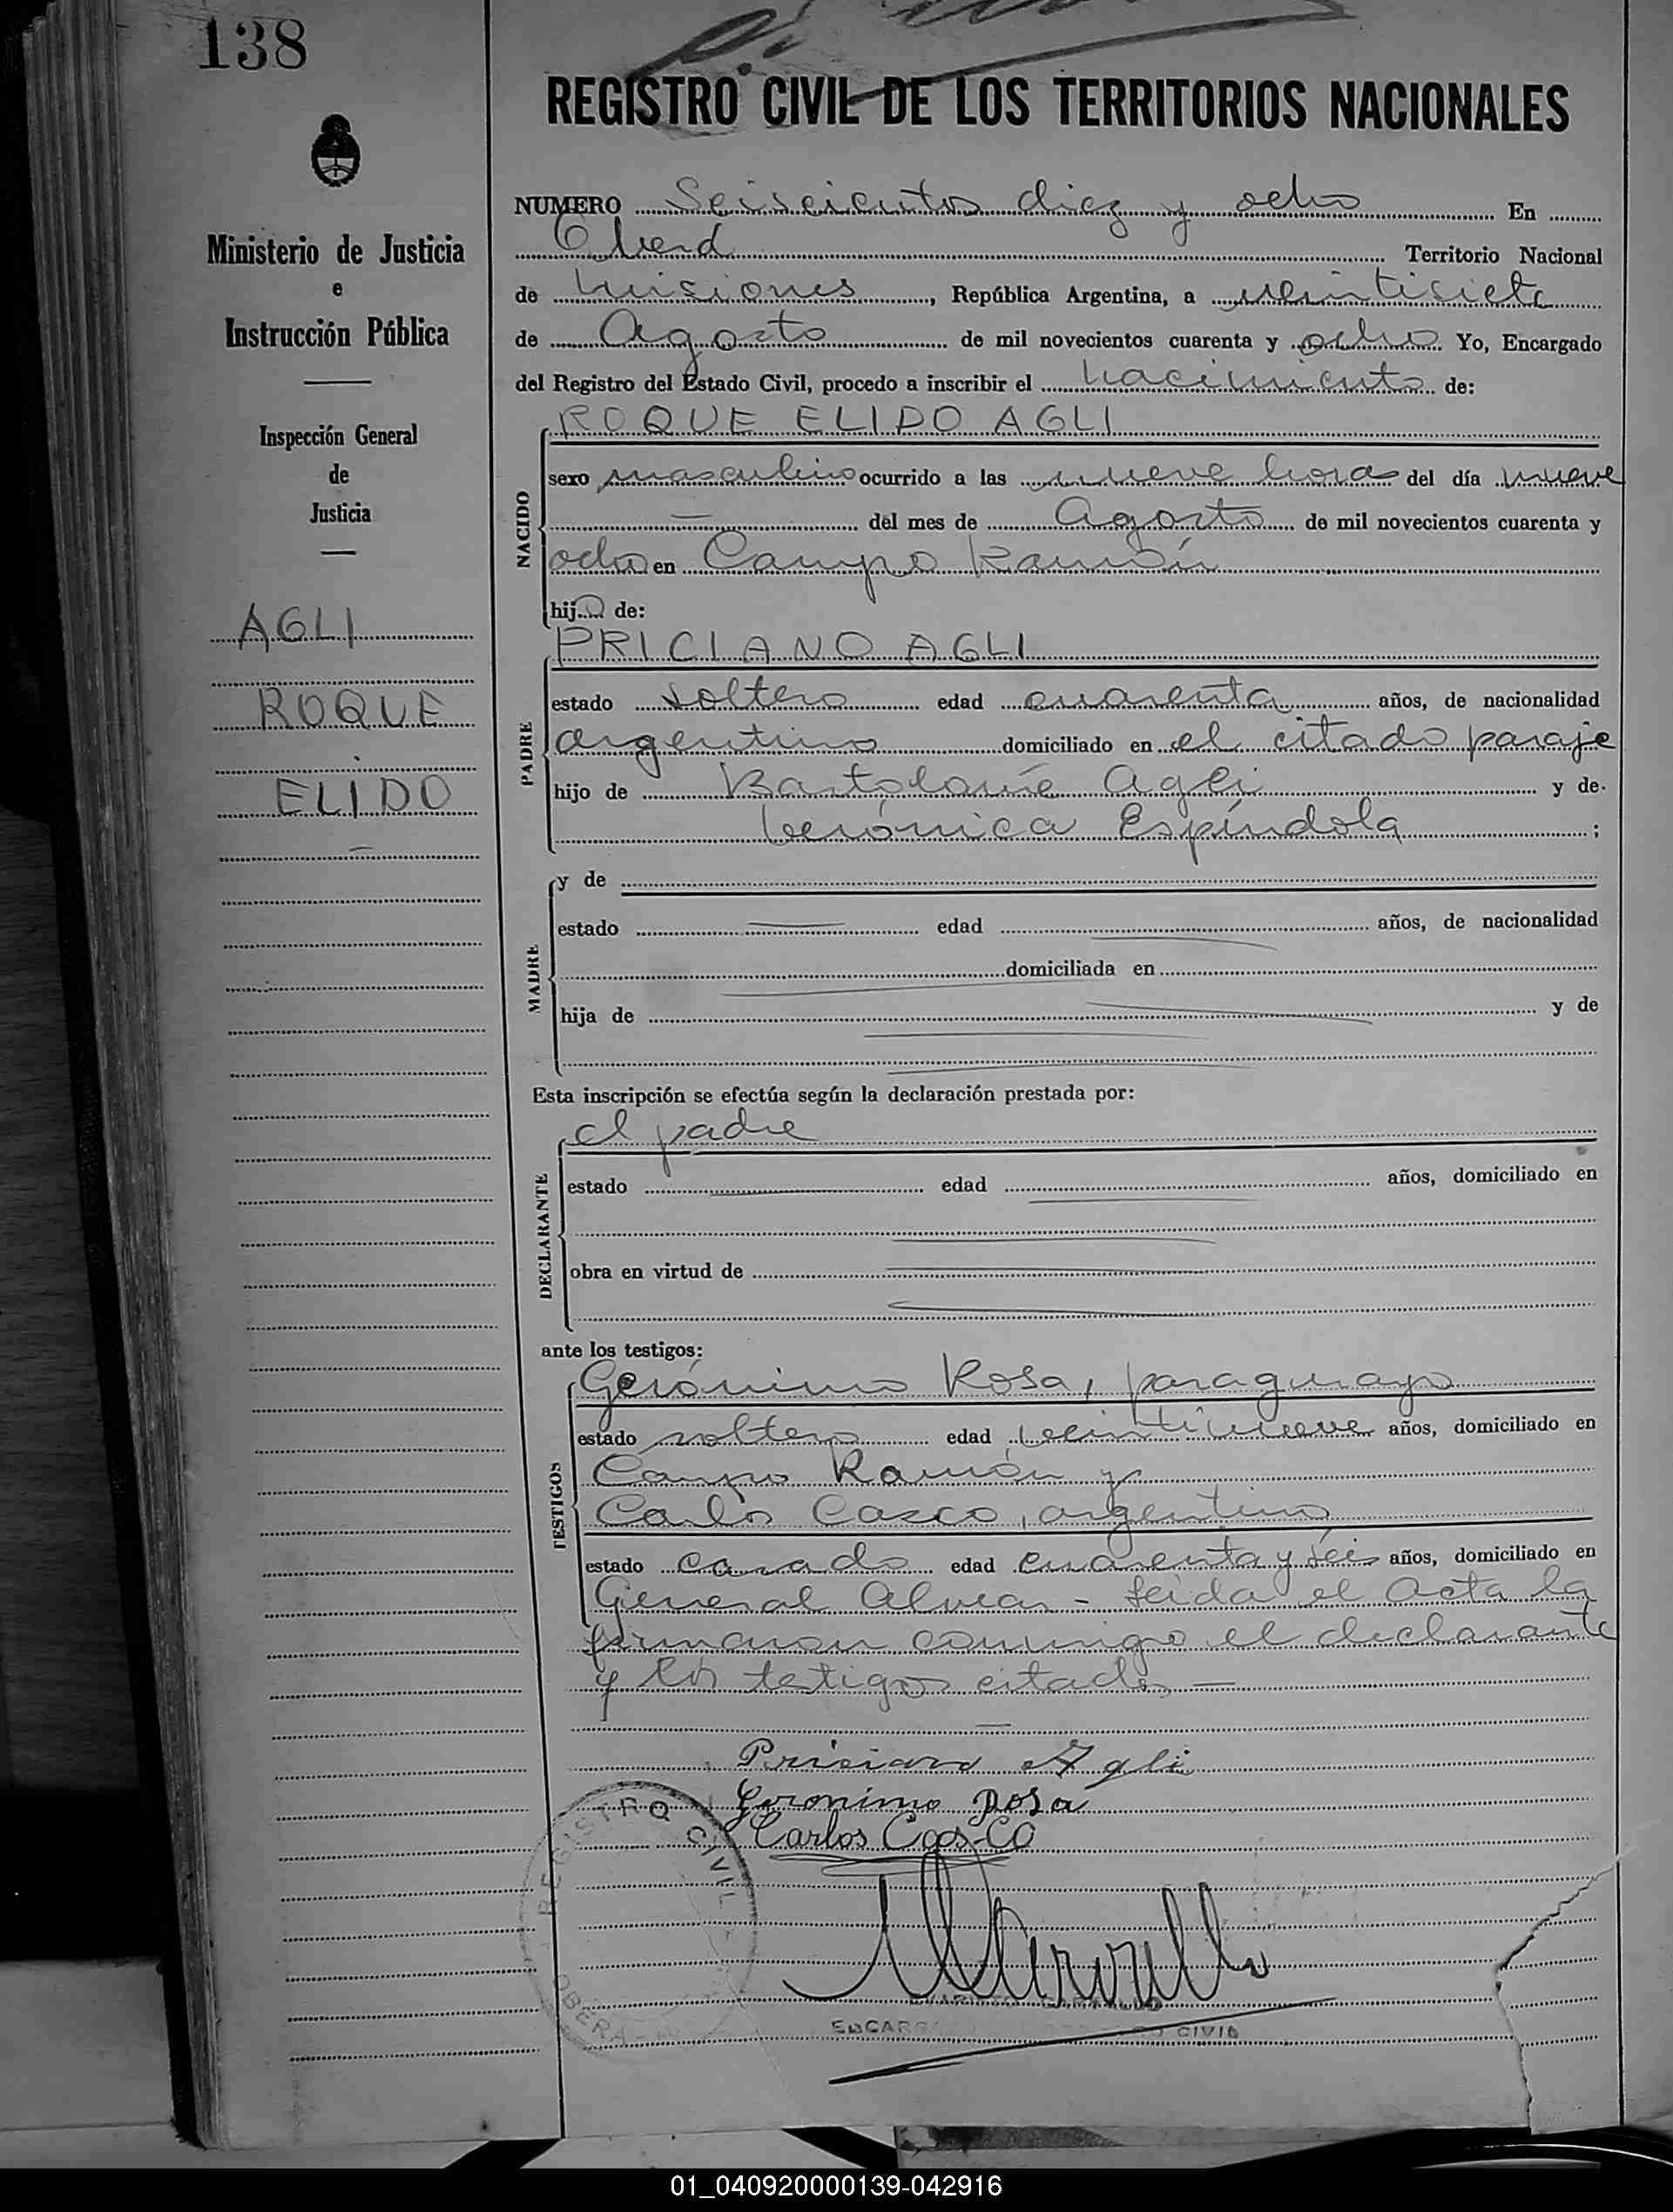 138
REGISTRO CIVIL DE LOS TERRITORIOS NACIONALES
Ministerio de Justicia
e
Instrucción Pública
Inspección General
de
Justicia
AGLI
ROQUE
ELIDO
NUMERO Seiscientos diez y ocho En
Oberá Territorio Nacional
de Misiones, República Argentina, a veintisiete
de Agosto de mil novecientos cuarenta y ocho Yo, Encargado
del Registro del Estado Civil, procedo a inscribir el nacimiento de:
ROQUE ELIDO AGLI
NACIDO
sexo masculino ocurrido a las nueve horas del día nueve
— del mes de Agosto de mil novecientos cuarenta y
ocho en Campo Ramón
hijo de:
PRICIANO AGLI
PADRE
estado soltero edad cuarenta años, de nacionalidad
argentino domiciliado en el citado paraje
hijo de Bartolomé Agli y de
Verónica Espíndola ;
MADRE
y de
estado edad años, de nacionalidad
domiciliada en
hija de y de
Esta inscripción se efectúa según la declaración prestada por:
el padre
DECLARANTE
estado edad años, domiciliado en
obra en virtud de
ante los testigos:
Gerónimo Rosa, paraguayo
TESTIGOS
estado soltero edad veintinueve años, domiciliado en
Campo Ramón y
Carlos Casco, argentino
estado casado edad cuarenta y seis años, domiciliado en
General Alvear - Leida el Acta la
firmaron conmigo el declarante
y los testigos citados —
Priciano Agli
Geronimo Rosa
Carlos Cas-co
REGISTRO CIVIL
OBERA
ENCARG CIVIL
01_040920000139-042916